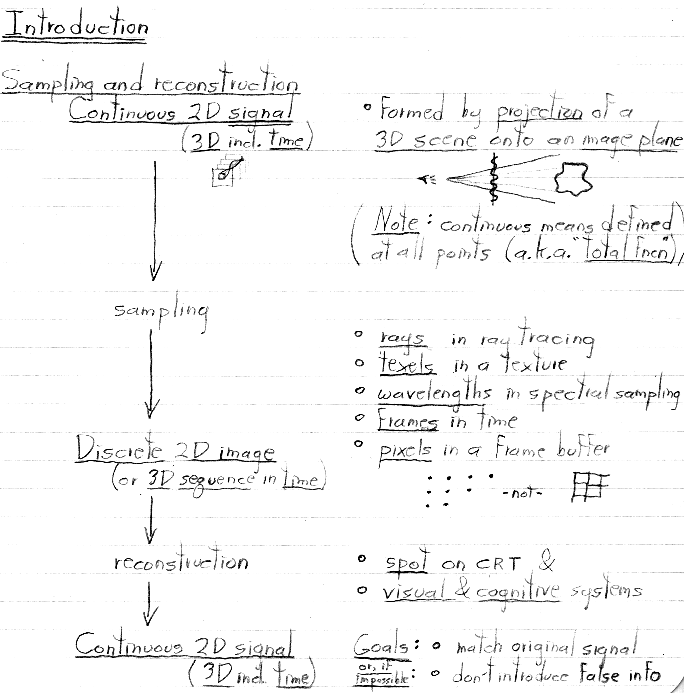 Introduction
Sampling and reconstruction
Continuous 2D signal
(3D incl. time)
• Formed by projection of a
3D scene onto an image plane
(Note: continuous means defined
at all points (a.k.a. "total fncn"),
sampling
• rays in ray tracing
• texels in a texture
• wavelengths in spectral sampling
• frames in time
• pixels in a frame buffer
Discrete 2D image
(or 3D sequence in time)
-not-
reconstruction
• spot on CRT &
• visual & cognitive systems
Continuous 2D signal
(3D incl. time)
Goals: • match original signal
or, if
impossible: • don't introduce false info